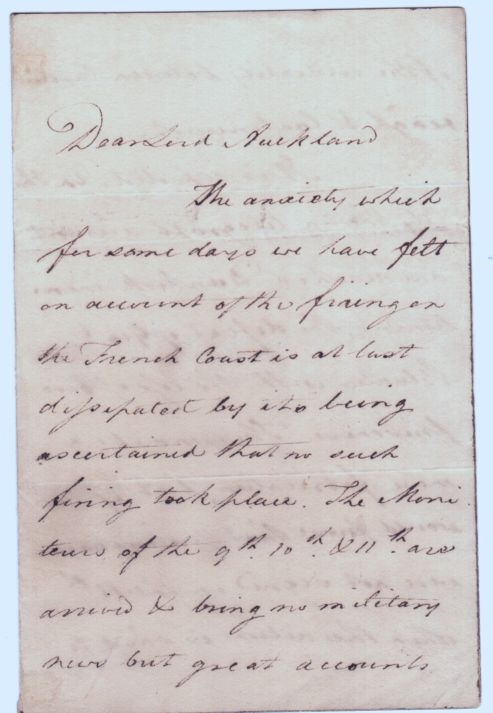 Dear Lord Auckland
The anxiety which
for some days we have felt
on account of the firing on
the French Coast is at last
dissipated by its being
ascertained that no such
firing took place. The Moni
teurs of the 9th. 10th. & 11th. are
arrived & bring no military
news but great accounts